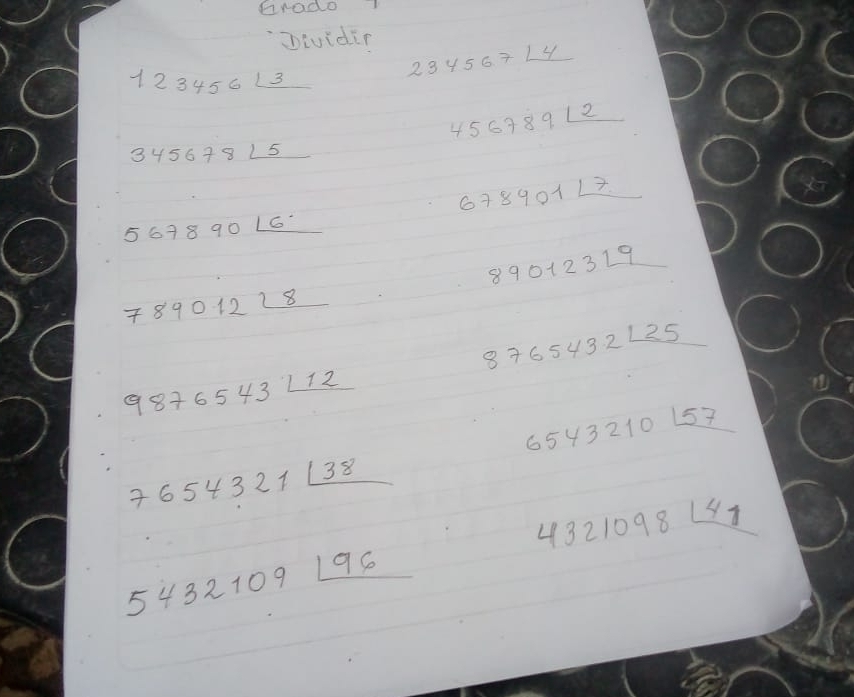 Grado
Dividir
123456 3
234567 4
345678 5
456789 2
567890 6
678901 7
789012 8
890123 9
9876543 12
8765432 25
7654321 38
6543210 57
5432109 96
4321098 41